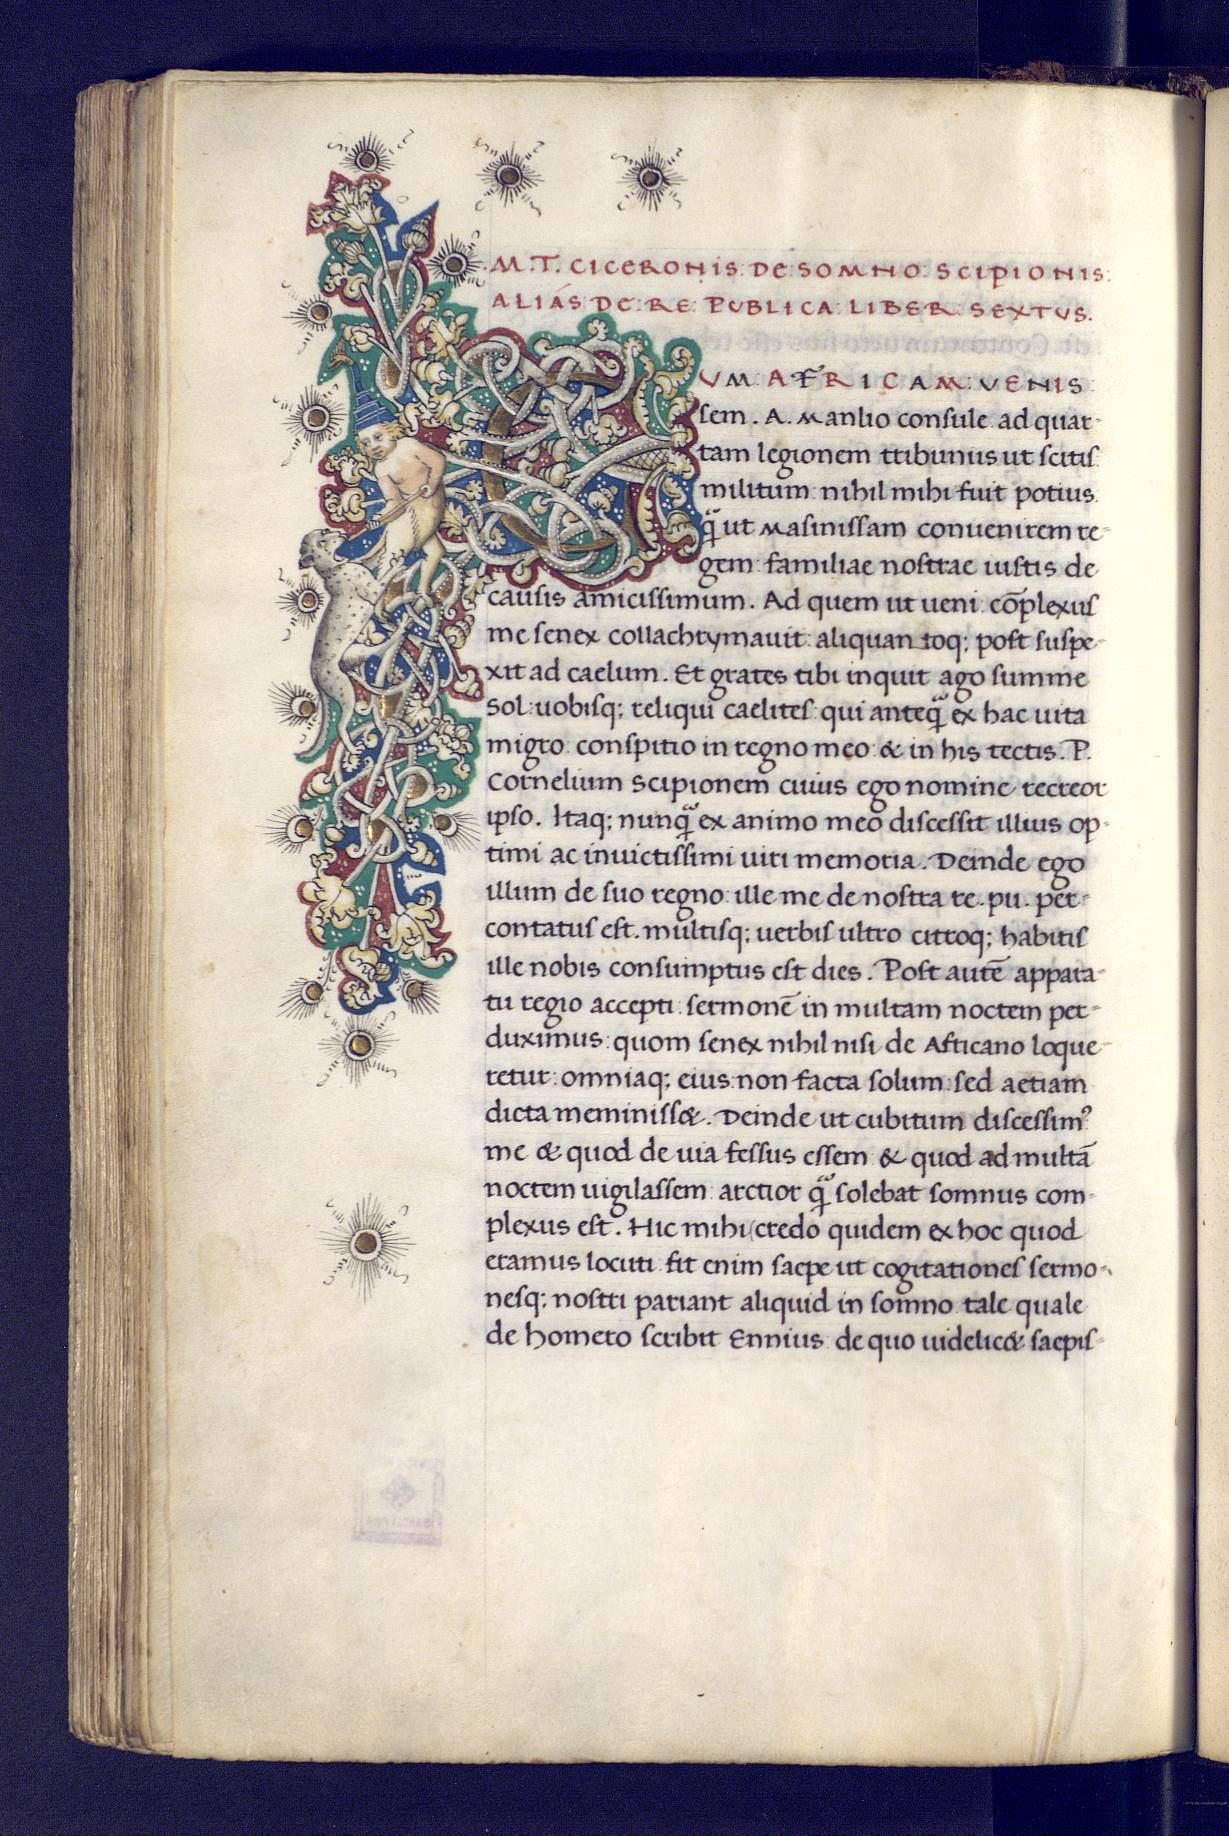 M. T. CICERONIS: DE SOMNO: SCIPIONIS:
ALIÁS DE: RE PUBLICA: LIBER: SEXTUS.
CUM AFRICAM: VENIS
sem. A. Manlio consule: ad quar-
tam legionem tribunus ut scitis
militum: nihil mihi fuit potius
q̃ ut Masinissam convenirem re-
gem: familiae nostrae iustis de
causis amicissimum. Ad quem ut veni: cōplexus
me senex collachrymavit: aliquan toq; post suspe-
xit ad caelum. Et grates tibi inquit ago summe
sol: uobisq; reliqui caelites: qui anteq̃ ex hac uita
migro: conspitio in regno meo: & in his tectis. P.
Cornelium scipionem cuius ego nomine recreor
ipso. Itaq; nunq̃ ex animo meo discessit illius op-
timi ac invictissimi uiri memoria. Deinde ego
illum de suo regno: ille me de nostra re. pu. per-
contatus est. multisq; uerbis ultro citroq; habitis
ille nobis consumptus est dies. Post autē appara-
tu regio accepti: sermonē in multam noctem per-
duximus: quom senex nihil nisi de Africano loque-
retur: omniaq; eius: non facta solum: sed aetiam
dicta meminiss&. Deinde ut cubitum discessim⁹
me & quod de uia fessus essem & quod ad multā
noctem uigilassem: arctior q̃ solebat somnus com-
plexus est. Hic mihi (credo quidem ex hoc quod
eramus locuti: fit enim saepe ut cogitationes sermo-
nesq; nostri pariant aliquid in somno tale quale
de homero scribit Ennius: de quo uidelic& saepis-